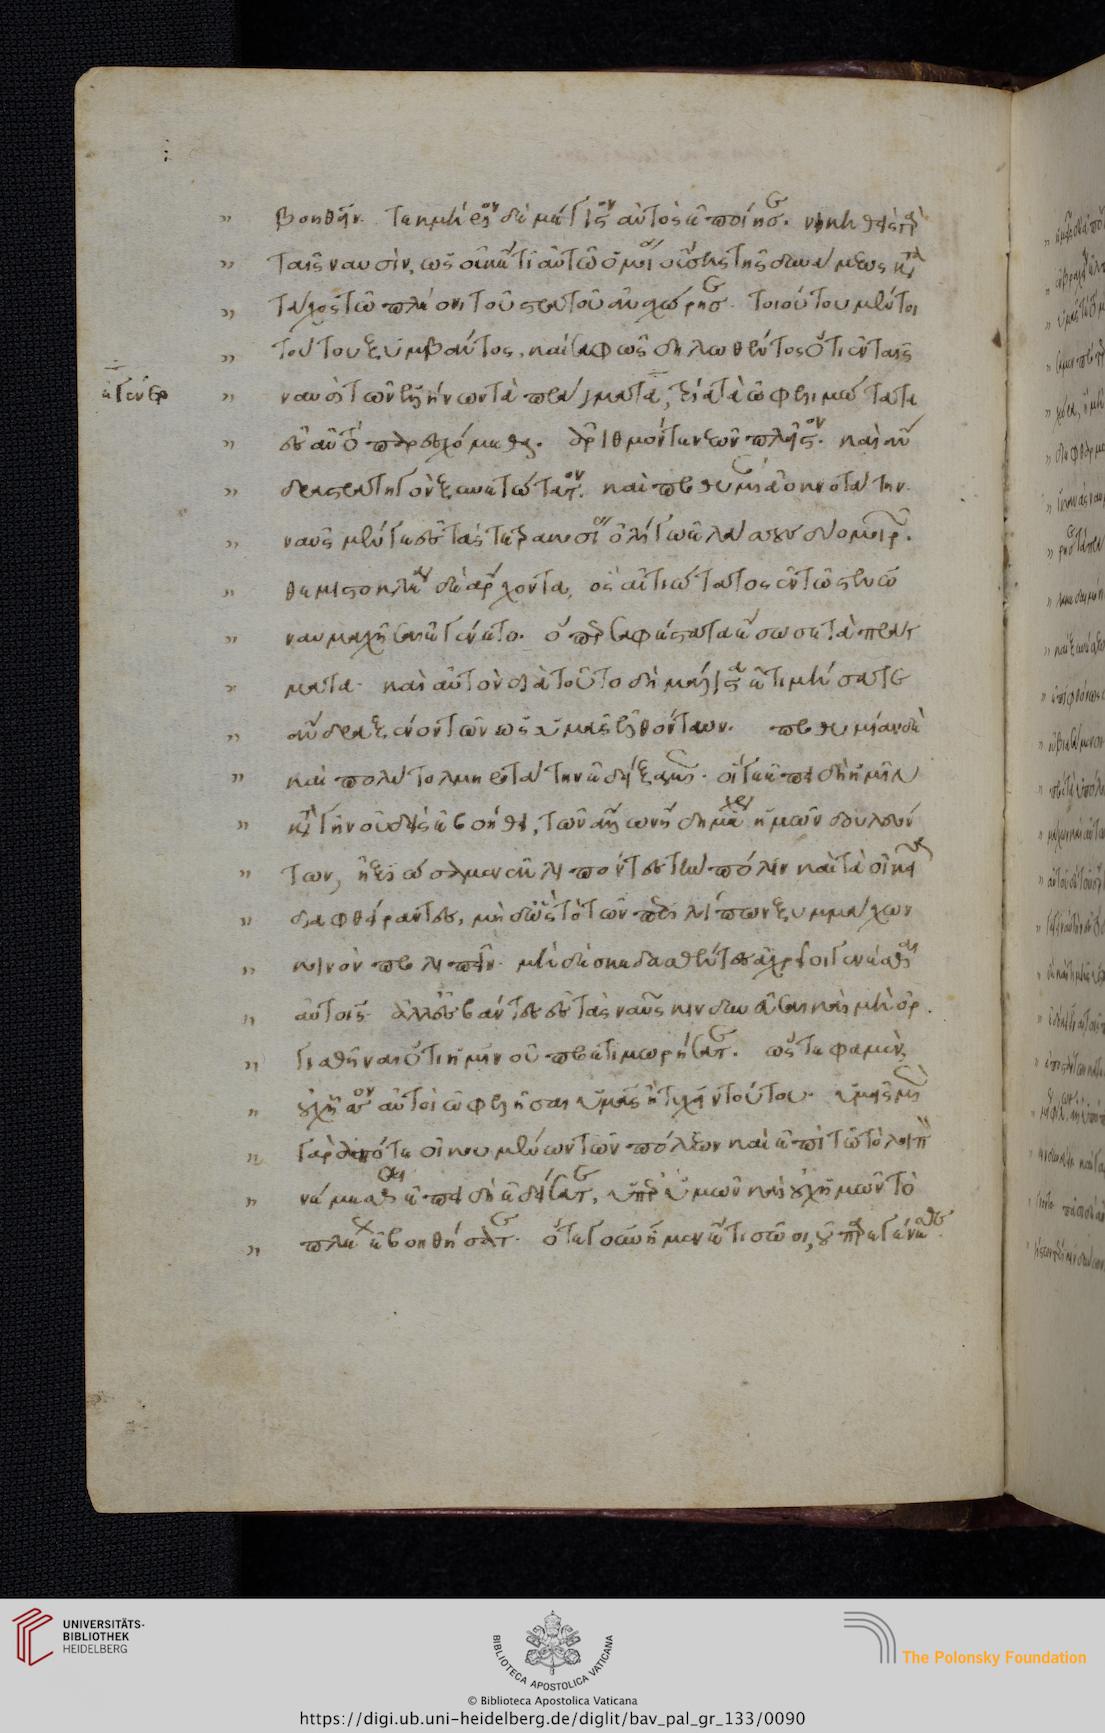 „ βοηθεῖν. τεκμήριον δὲ μέγιστον αὐτὸς ἐποίησε. νικηθεὶς γὰρ
„ ταῖς ναυσὶν, ὡς οὐκέτι αὐτῶ ὁμοίας οὔσης τῆς δυνάμεως κατὰ
„ τάχος τῶ πλέονι τοῦ στρατοῦ ἀνεχώρησε. τοιούτου μέντοι
„ τούτου ξυμβάντος, καὶ σαφῶς δηλωθέντος ὅτι ἐν ταῖς
ἐγένετο „ ναυσὶ τῶν ἑλλήνων τὰ πράγματα, τρία τὰ ὠφελιμώτατα
„ ἐς αὐτὸ παρεσχόμεθα. ἀριθμόν τε νεῶν πλεῖστον. καὶ ἄν
„ δρα στρατηγὸν ξυνετώτατον. καὶ προθυμίαν ἀοκνοτάτην.
„ ναῦς μέν γε ἐς τὰς τετρακοσίους ὀλίγω ἐλάσσους δύο μοιρῶν.
„ θεμιστοκλέα δὲ ἄρχοντα, ὃς αἰτιώτατος ἐν τῶ στενῶ
„ ναυμαχῆσαι ἐγένετο. ὅπερ σαφέστατα ἔσωσε τὰ πράγ
„ ματα. καὶ αὐτὸν διὰ τοῦτο δὴ μάλιστα ἐτιμήσατε
„ ἄνδρα ξένον τῶν ὡς ὑμᾶς ἐλθόντων. προθυμίαν δὲ
„ καὶ πολὺ τολμηροτάτην ἐδείξαμεν. οἵ γε ἐπειδὴ ἡμῖν
„ κατὰ γῆν οὐδεὶς ἐβοήθει, τῶν ἄλλων ἤδη μέχρι ἡμῶν δουλευόν
„ των, ἠξιώσαμεν ἐκλιπόντες τὴν πόλιν καὶ τὰ οἰκεῖα
„ διαφθείραντες, μὴ δ' ὣς τὸ τῶν περιλοίπων ξυμμάχων
„ κοινὸν προλιπεῖν. μὴ δὲ σκεδασθέντες ἀχρεῖοι γενέσθαι
„ αὐτοῖς. ἀλλ' ἐσβάντες ἐς τὰς ναῦς κινδυνεῦσαι καὶ μὴ ὀρ
„ γισθῆναι ὅτι ἡμῖν οὐ προετιμωρήσατε. ὥστε φαμὲν
„ οὐχ ἧσσον αὐτοὶ ὠφελῆσαι ὑμᾶς ἢ τυχεῖν τούτου. ὑμεῖς μὲν
„ γὰρ ἀπό τε οἰκουμένων τῶν πόλεων καὶ ἐπὶ τῶ τὸ λοιπὸν
„ νέμεσθαι ἐπειδὴ ἐδείσατε, ὑπὲρ ὑμῶν καὶ οὐχ ἡμῶν τὸ
„ πλέον ἐβοηθήσατε. ὅτε γοῦν ἦμεν ἔτι σῶοι, οὐ παρεγένεσθε.
UNIVERSITÄTS-
BIBLIOTHEK
HEIDELBERG
BIBLIOTECA APOSTOLICA VATICANA
The Polonsky Foundation
© Biblioteca Apostolica Vaticana
https://digi.ub.uni-heidelberg.de/diglit/bav_pal_gr_133/0090